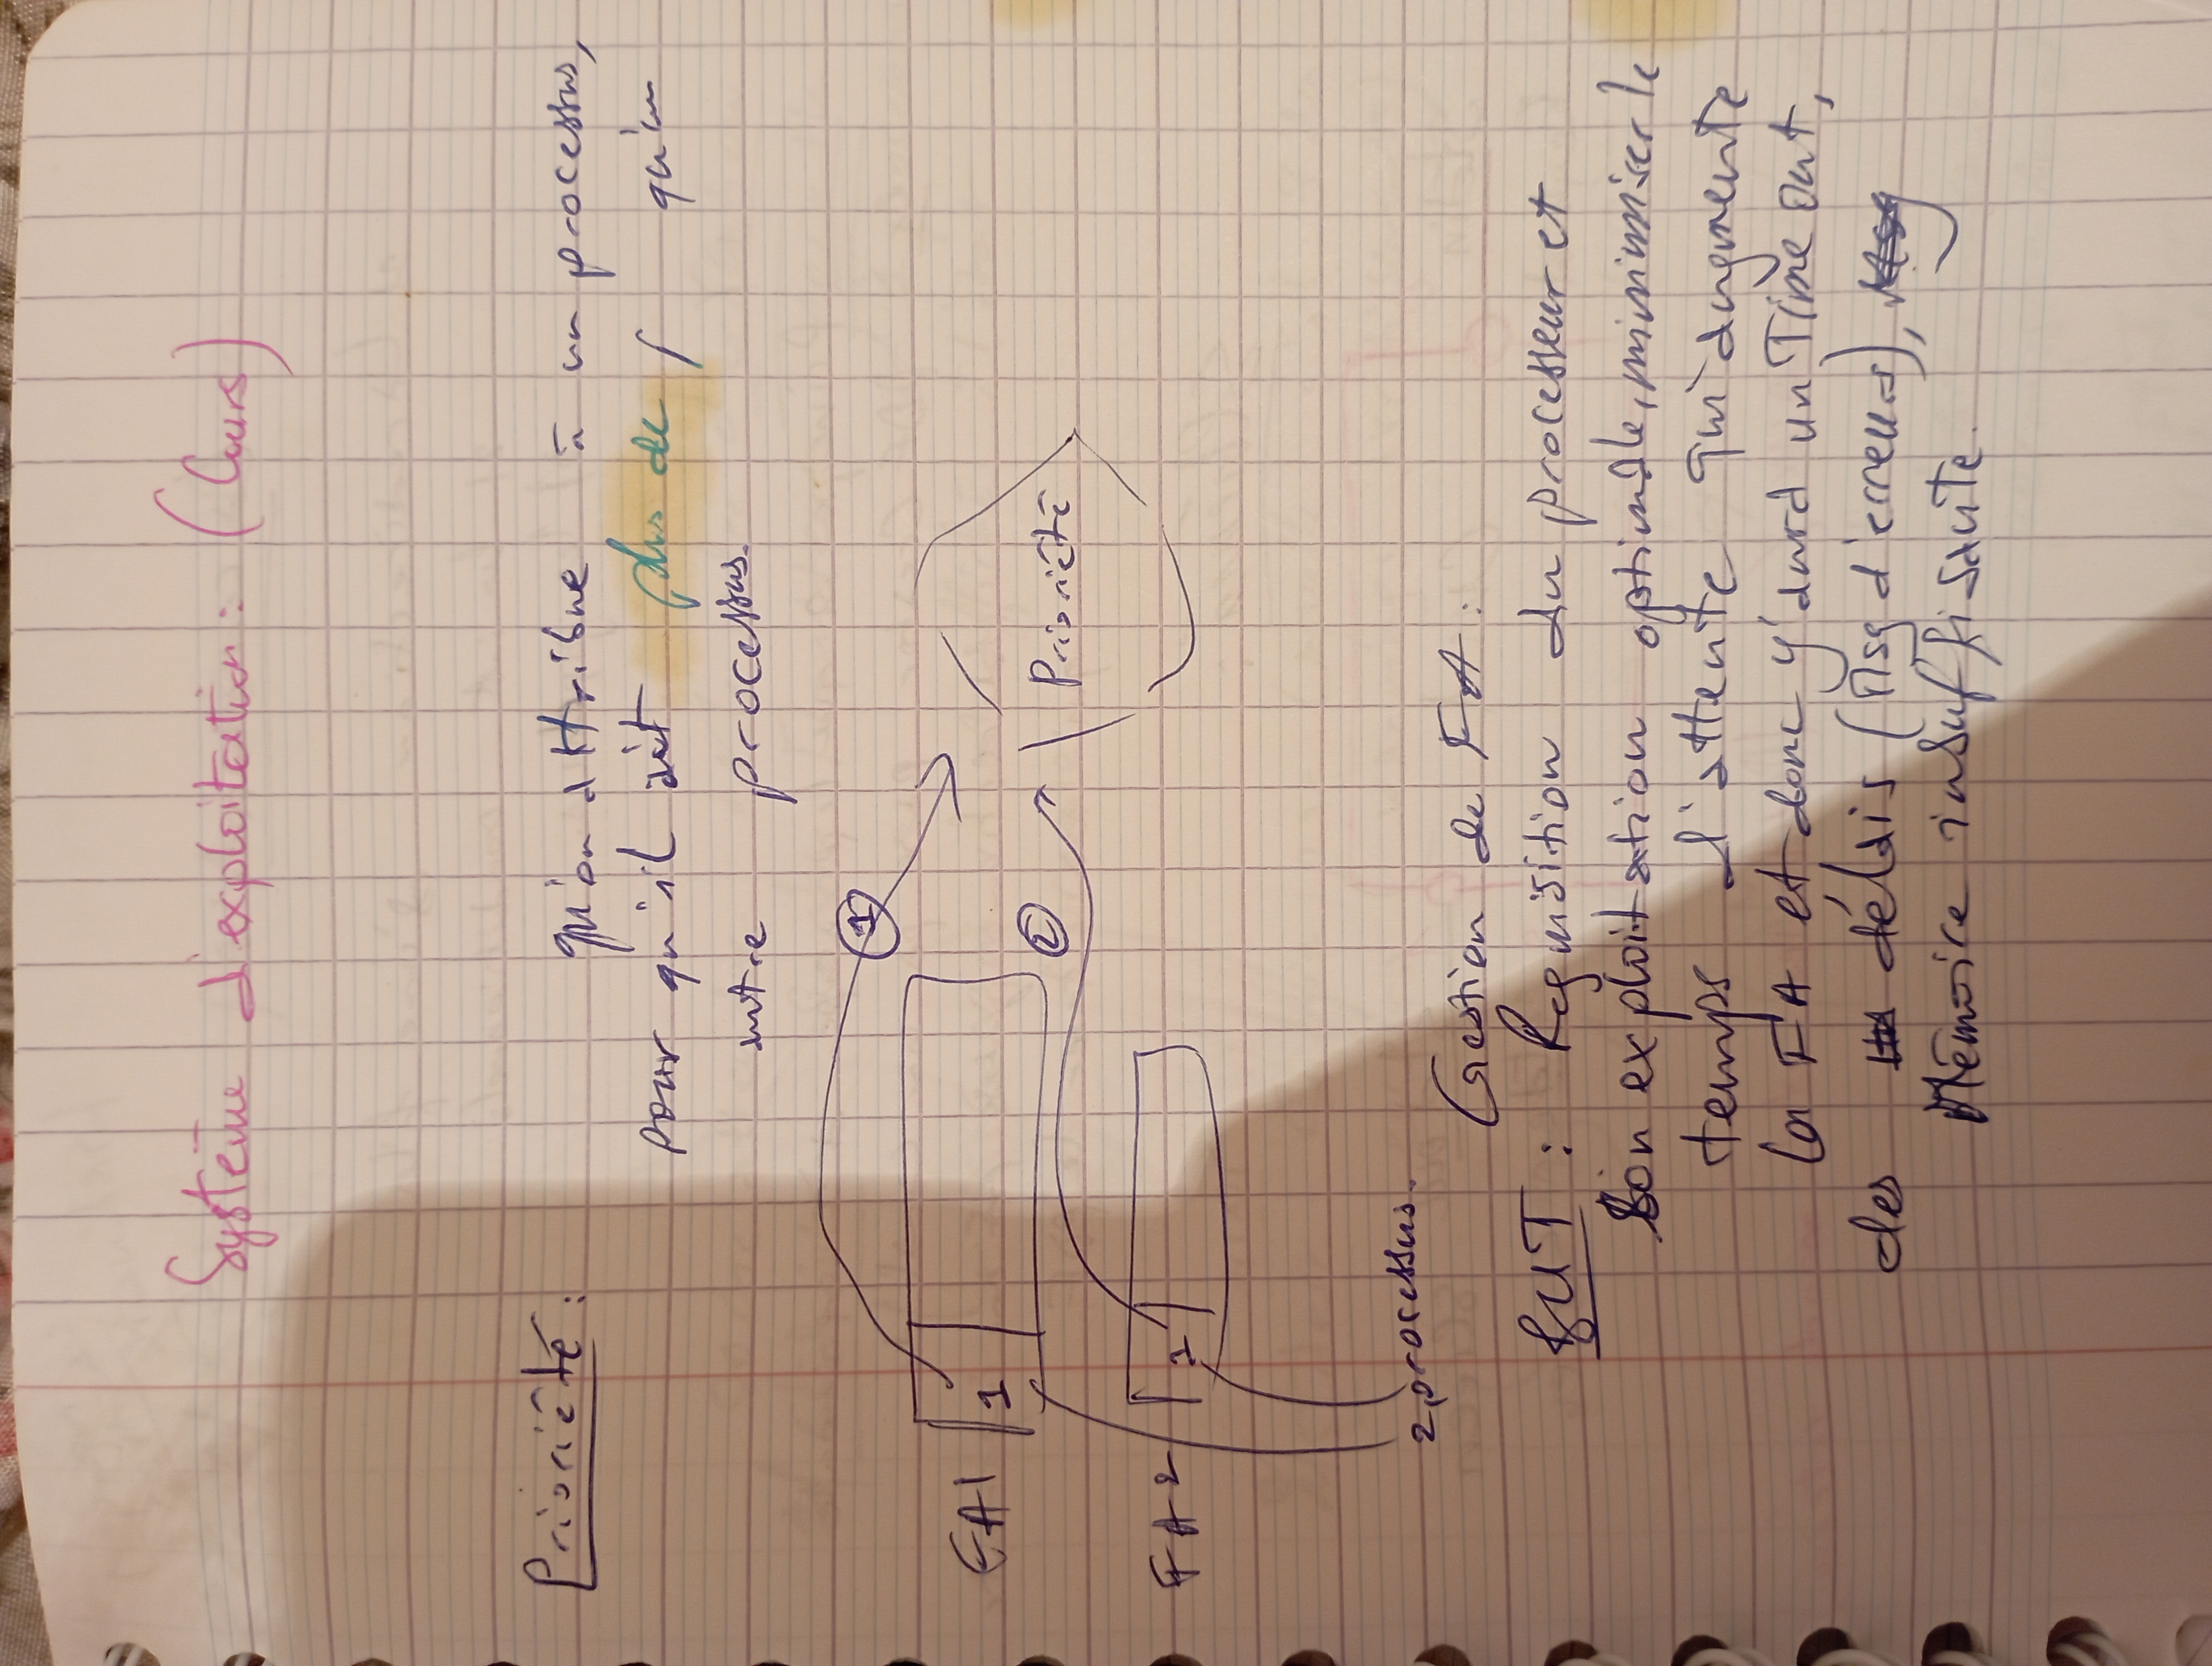 Système d'exploitation : (Cours)
Priorité :
qu'on attribue à un processus,
pour qu'il ait plus de / qu'un
autre processus.
1
FA1 1
2
FA2 1
Priorité
2 processus.
Gestion de FA :
BUT : Requisition du processeur et
son exploitation optimale, minimiser le
temps d'attente qui augmente
la FA et donc y'aura un Time Out,
des délais (Msg d'erreurs),
Mémoire insuffisante.